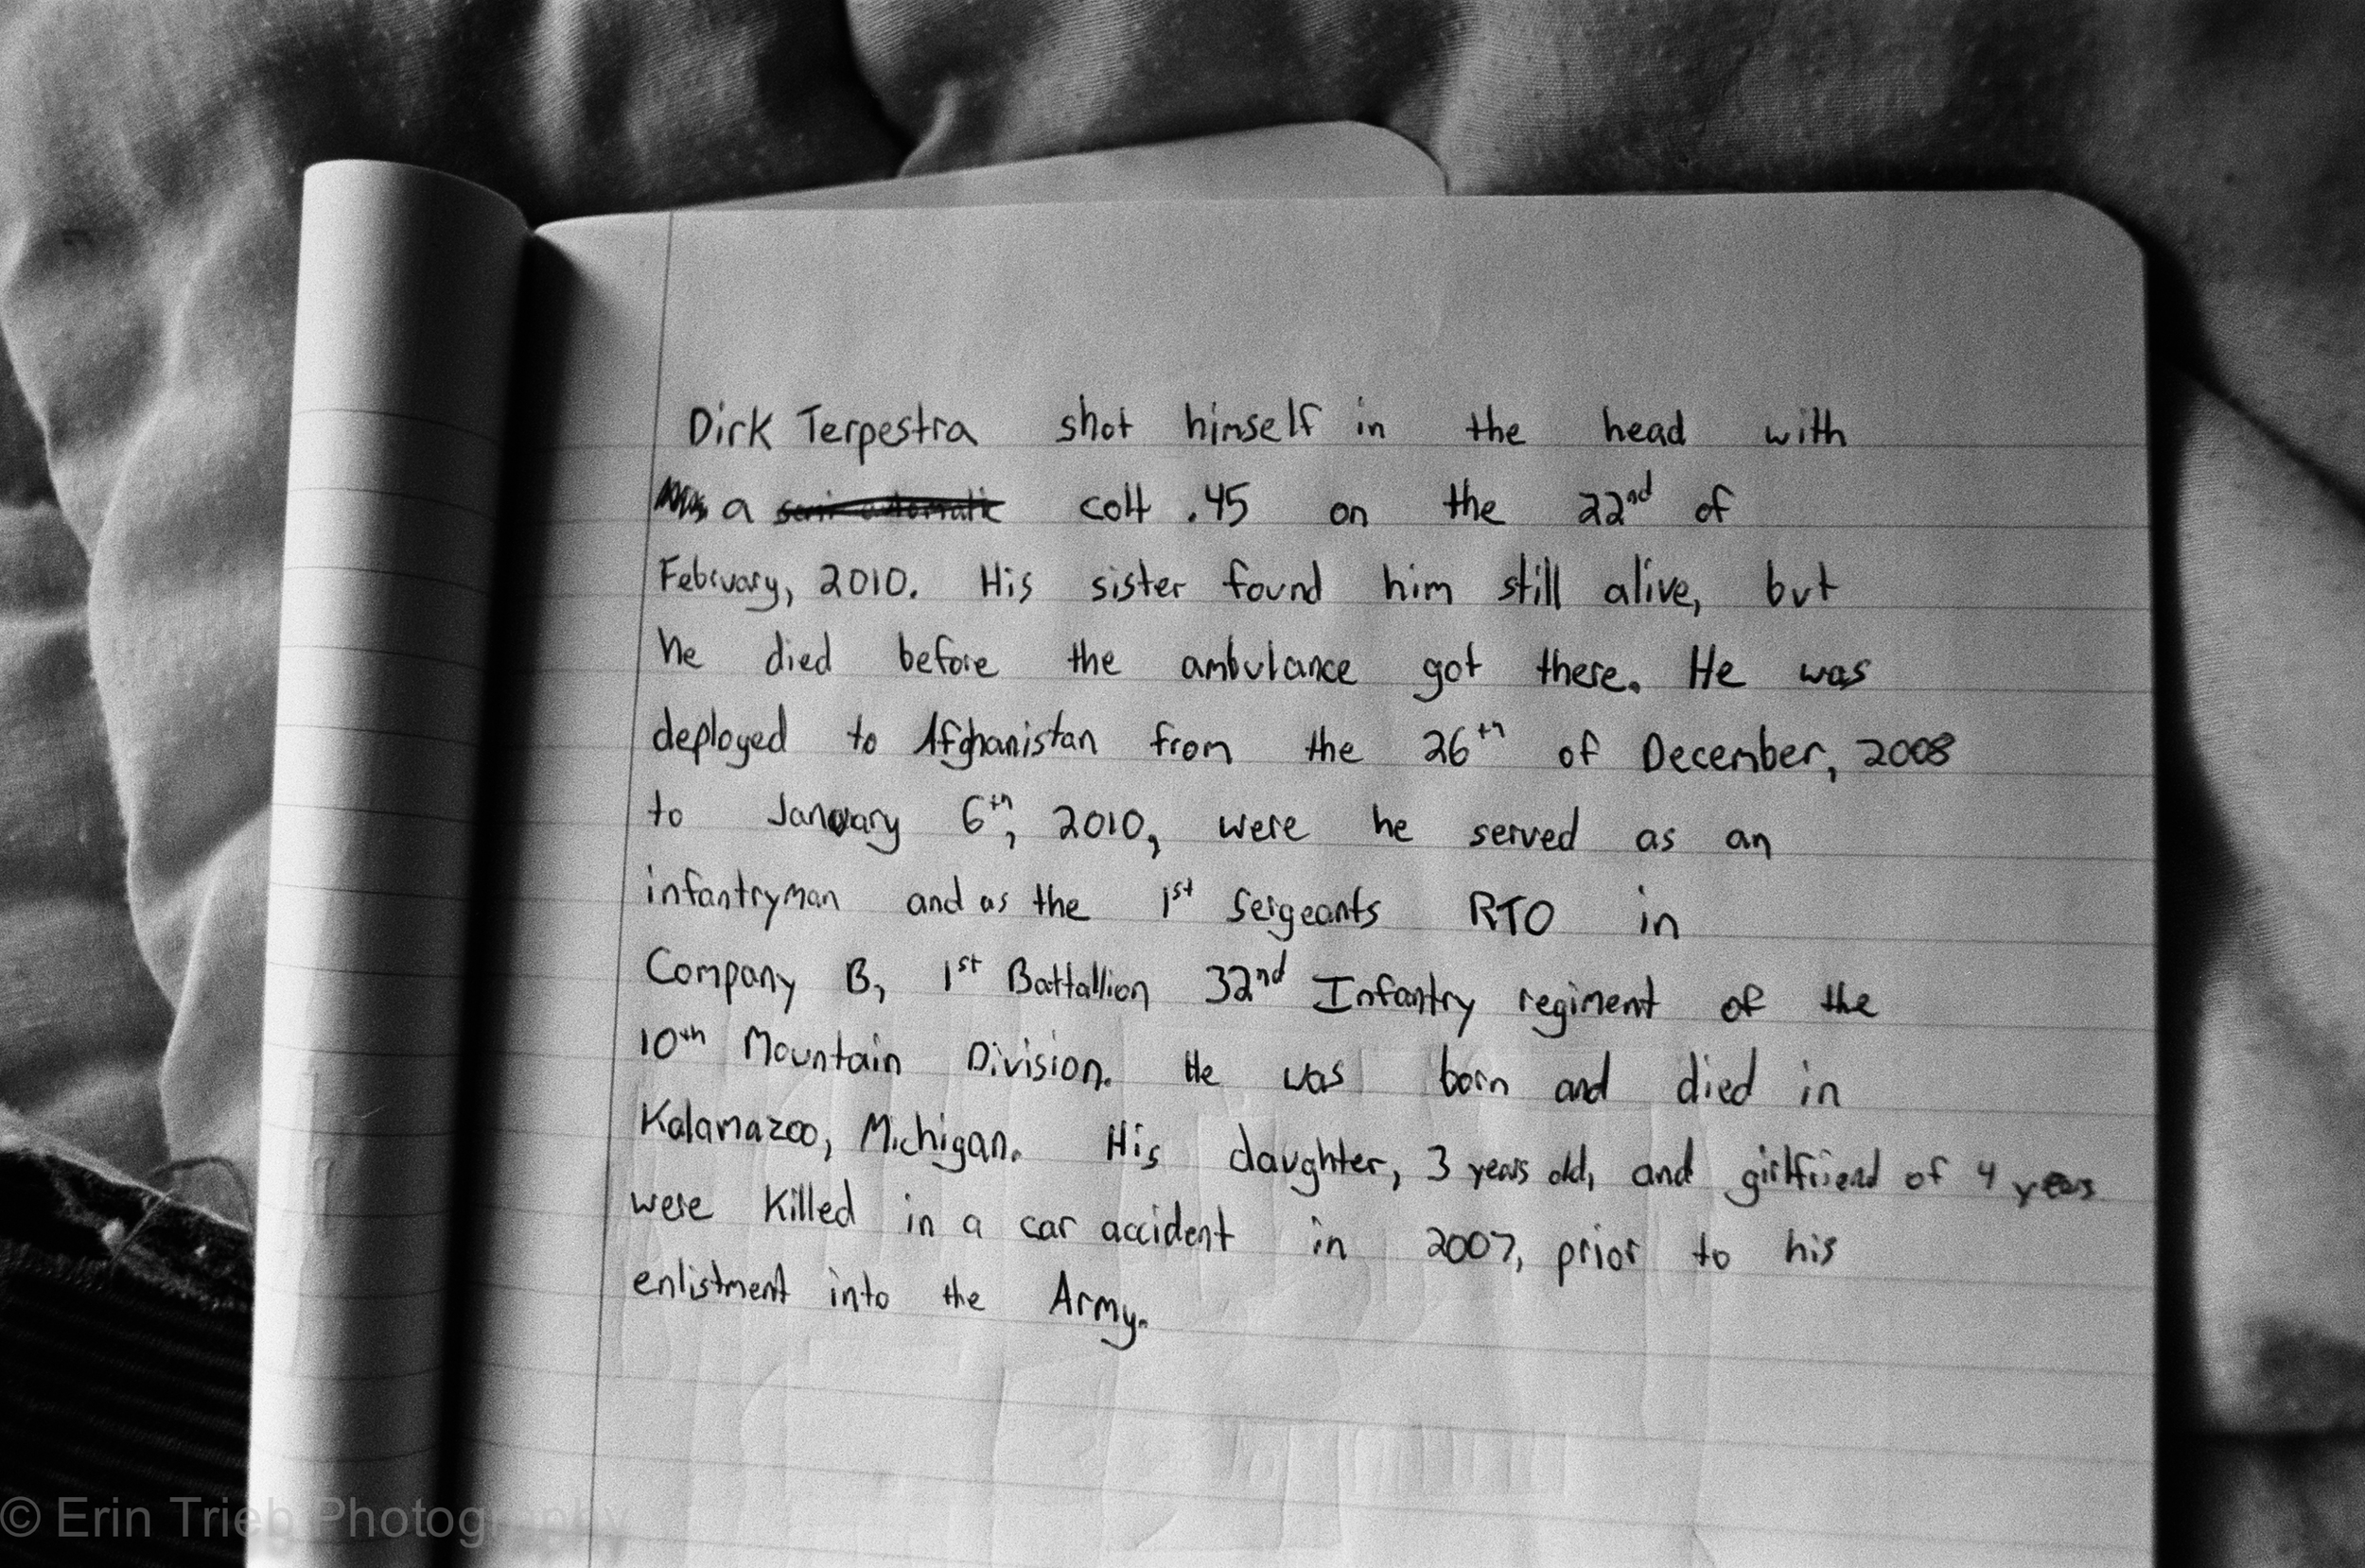 Dirk Terpestra shot himself in the head with
a semi automatic colt .45 on the 22nd of
February, 2010. His sister found him still alive, but
he died before the ambulance got there. He was
deployed to Afghanistan from the 26th of December, 2008
to January 6th, 2010, were he served as an
infantryman and as the 1st Sergeants RTO in
Company B, 1st Battallion 32nd Infantry regiment of the
10th Mountain Division. He was born and died in
Kalamazoo, Michigan. His daughter, 3 years old, and girlfriend of 4 years
were killed in a car accident in 2007, prior to his
enlistment into the Army.
© Erin Trieb Photography